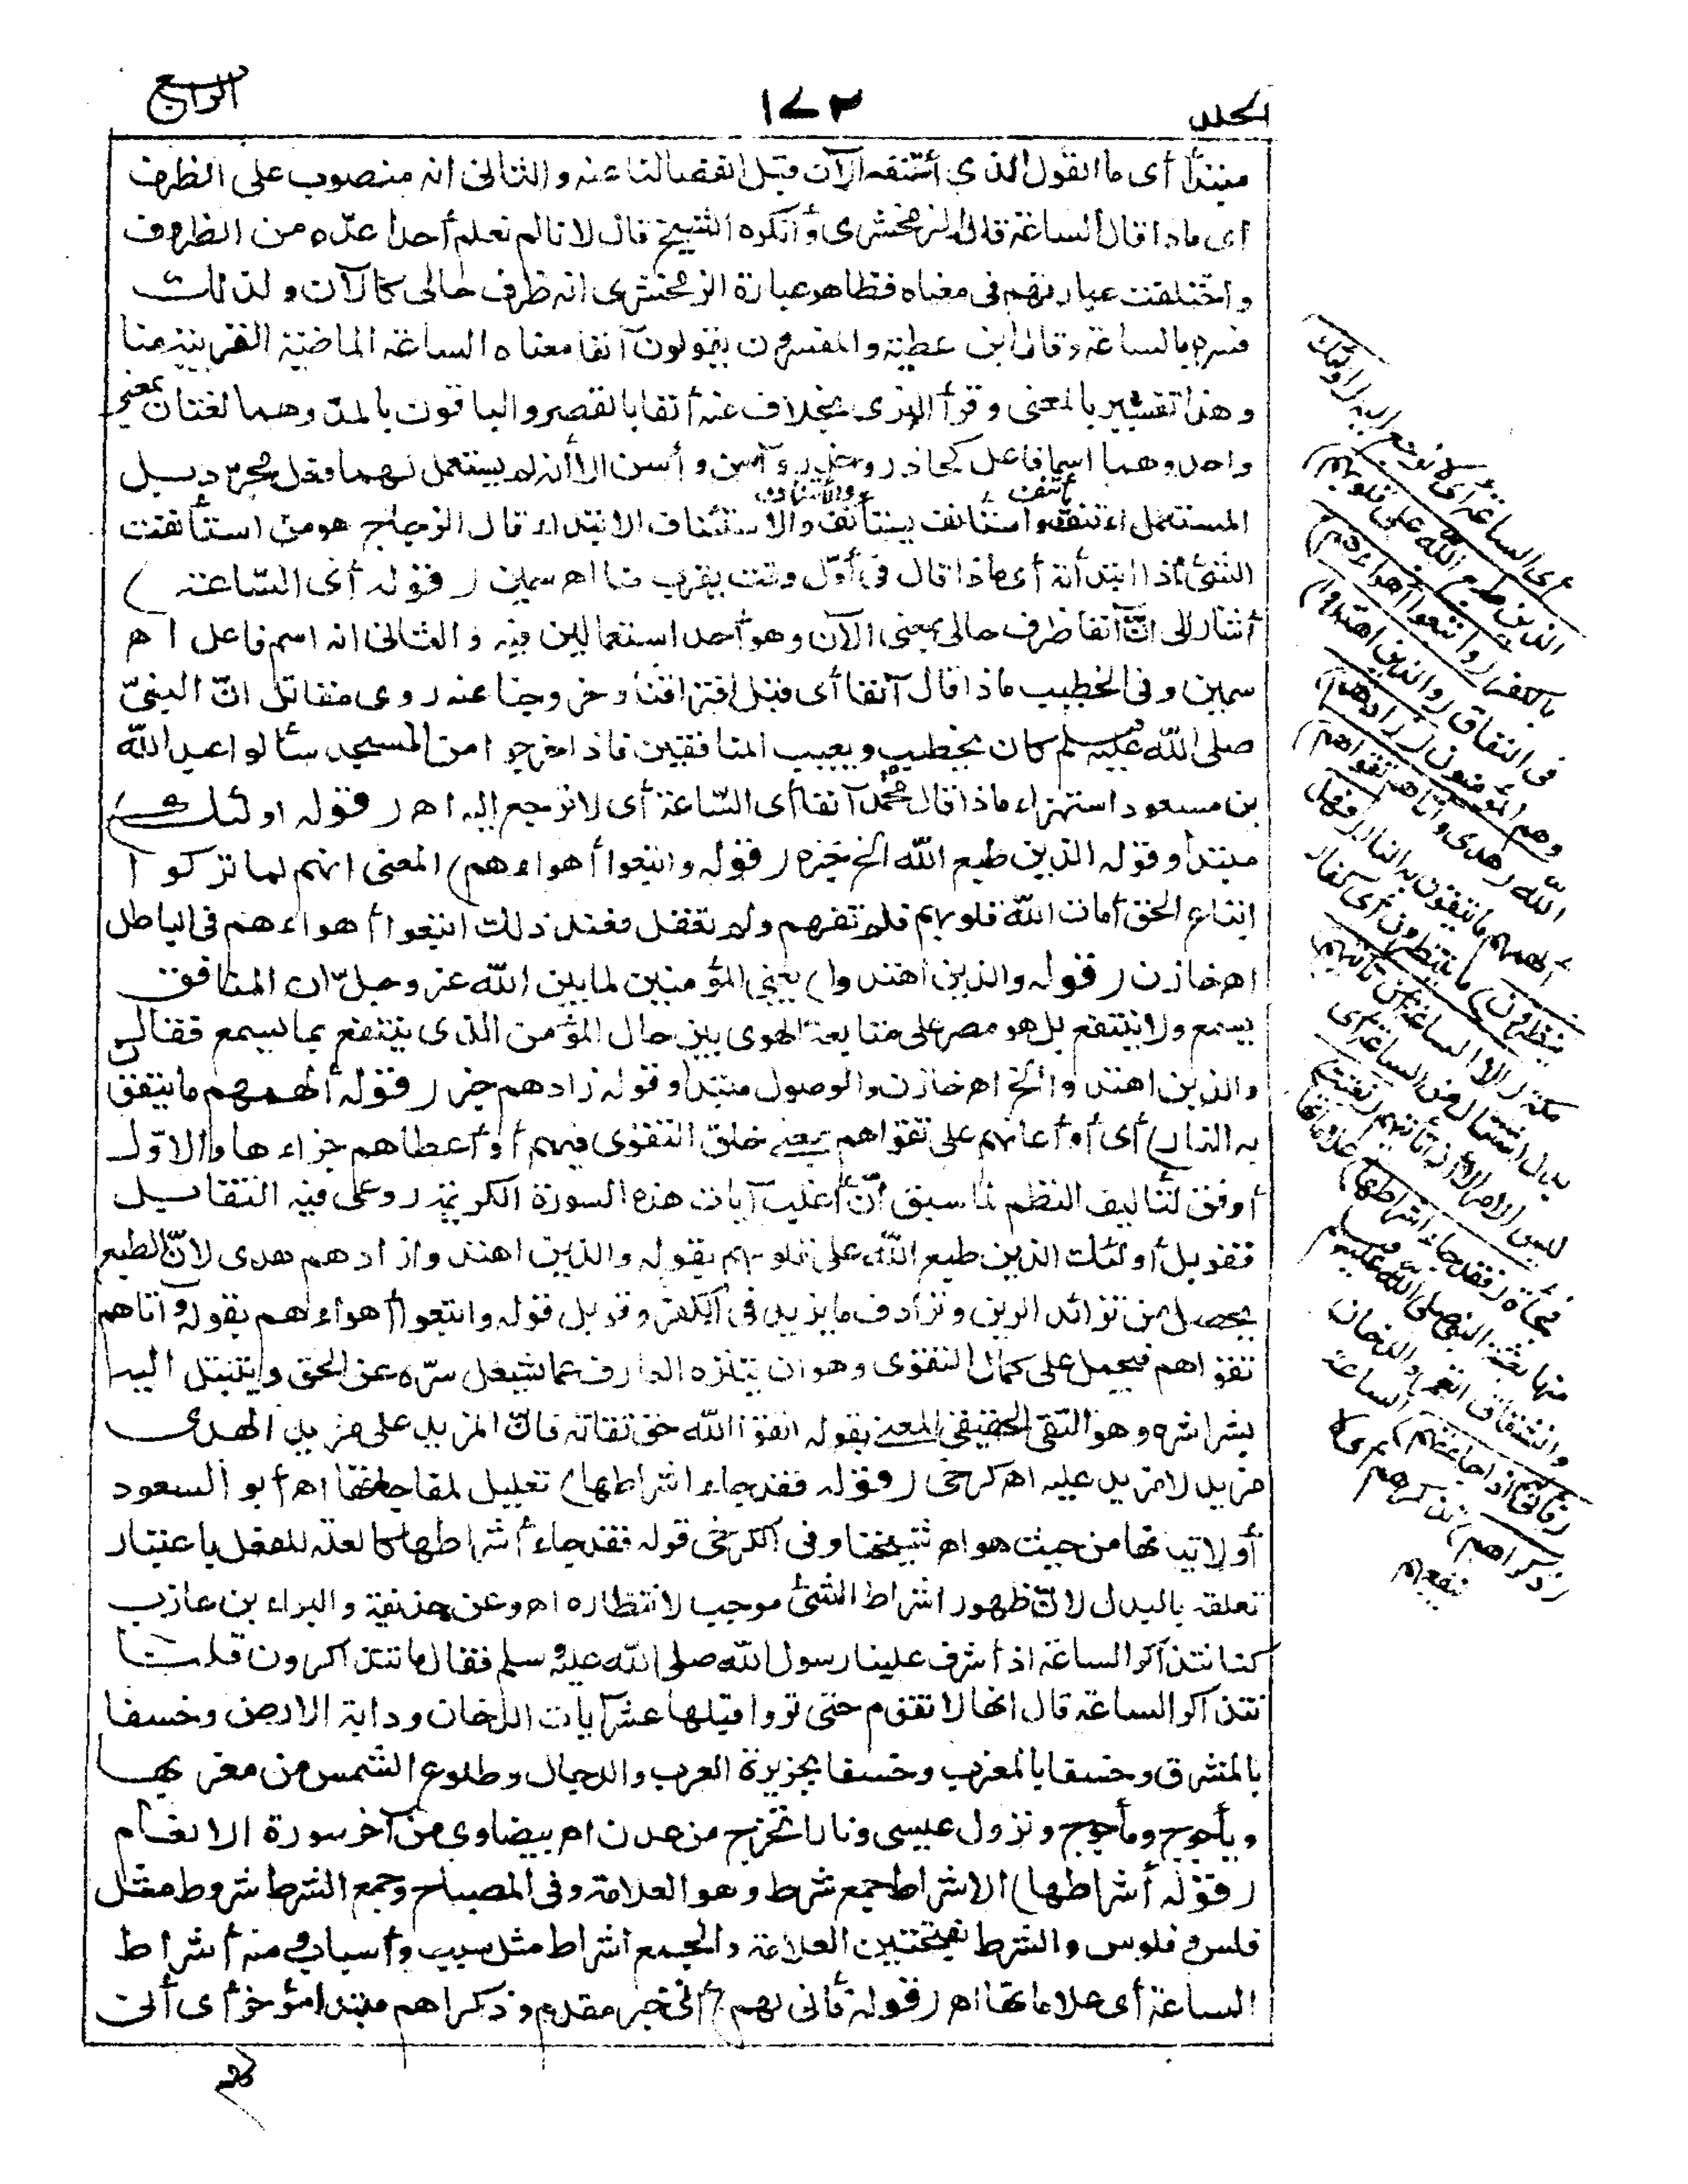 المجلد
١٧٢
الرابع
مبتدأ أى ما القول الذى أئتنفه الآن قبل انفصالنا عنه و الثانى انه منصوب على الظرف
أى ماذا قال الساعة قاله الزمخشرى وأنكره الشيخ قال لانا لم نعلم أحدا عدّه من الظروف
واختلفت عبارتهم فى معناه فظاهر عبارة الزمخشرى انه ظرف حالى كالآن ولذلك
فسره بالساعة وقال ابن عطية والمفسرون يقولون آنفا معناه الساعة الماضية القريبة منا
وهذا تفسير بالمعنى وقرأ البزى بخلاف عنه أنفا بالقصر والباقون بالمد وهما لغتان بمعنى
واحد وهما اسما فاعل كحاذر وحذر وآسن وأسن الا أنه لم يستعمل لهما فعل مجرّد بل
المستعمل ائتنف يأتنف واستأنف يستأنف والائتناف والاستئناف الابتداء قال الزجاج هو من استأنفت
الشئ اذا ابتدأته أى ماذا قال فى أوّل وقت يقرب منا اه سمين (قوله أى الساعة)
أشار الى انّ آنفا ظرف حالى بمعنى الآن وهو أحد استعمالين فيه و الثانى انه اسم فاعل اه
سمين وفى الخطيب ماذا قال آنفا أى قبل افتراقنا وخروجنا عنه روى مقاتل انّ النبىّ
صلى الله عليه وسلم كان يخطب ويعيب المنافقين فاذا خرجوا من المسجد سألوا عبد الله
بن مسعود استهزاء ماذا قال محمد آنفا أى الساعة أى لا نرجع إليه اه (قوله اولئك)
مبتدأ وقوله الذين طبع الله الخ خبره (قوله واتبعوا أهواءهم) المعنى انهم لما تركوا
اتباع الحق أمات الله قلوبهم فلم تفهم ولم تعقل فعند ذلك اتبعوا أهواءهم فى الباطل
اه خازن (قوله والذين اهتدوا) يعنى المؤمنين لما بين الله عز وجلّ ان المنافق
يسمع ولا ينتفع بل هو مصر على متابعة الهوى بين حال المؤمن الذى ينتفع بما يسمع فقال
والذين اهتدوا الخ اه خازن والموصول مبتدأ وقوله زادهم خبر (قوله ألهمهم ما يتقون
به النار) أى أو أعانهم على تقواهم بمعنى خلق التقوى فيهم أو أعطاهم جزاءها والاوّل
أوفق لتأليف النظم لما سبق أنّ أغلب آيات هذه السورة الكريمة روعى فيه التقابل
فقوبل أولئك الذين طبع الله على قلوبهم بقوله والذين اهتدوا زادهم هدى لانّ الطبع
يحصل من تزائد الرين وترادف ما يزيد فى الكفر وقوبل قوله واتبعوا أهواءهم بقوله وآتاهم
تقواهم فيحمل على كمال التقوى وهو ان يتنزه العارف عما يشغل سرّه عن الحق ويتبتل اليه
بشراشره وهو التقى الحقيقى المعنى بقوله اتقوا الله حق تقاته فانّ المزيد على مزيد الهدى
مزيد لا مزيد عليه اه كرخى (قوله فقد جاء اشراطها) تعليل لمفاجاتها اه أبو السعود
أو لاتيانها من حيث هو اه شيخنا وفى الكرخى قوله فقد جاء أشراطها كالعلة للفعل باعتبار
تعلقه بالبدل لانّ ظهور اشراط الشئ موجب لانتظاره اه وعن حذيفة والبراء بن عازب
كنا نتذاكر الساعة اذ أشرف علينا رسول الله صلى الله عليه وسلم فقال ما تتذاكرون قلنا
نتذاكر الساعة قال انها لا تقوم حتى تروا قبلها عشر آيات الدخان ودابة الارض وخسفا
بالمشرق وخسفا بالمغرب وخسفا بجزيرة العرب والدجال وطلوع الشمس من مغربها
ويأجوج ومأجوج ونزول عيسى ونارا تخرج من عدن اه بيضاوى من آخر سورة الانعام
(قوله أشراطها) الاشراط جمع شرط وهو العلامة وفى المصباح وجمع الشرط شروط مثل
فلس وفلوس والشرط بفتحتين العلامة والجمع اشراط مثل سبب وأسباب ومنه أشراط
الساعة أى علاماتها اه (قوله فأنى لهم) أنى خبر مقدم وذكراهم مبتدأ مؤخر أى أنى
أى الساعة أى لا نرجع إليه (اولئك
الذين طبع الله على قلوبهم)
بالكفر (واتبعوا أهواءهم)
فى النفاق (والذين اهتدوا)
وهم المؤمنون (زادهم)
الله (هدى وآتاهم تقواهم)
ألهمهم ما يتقون به النار (فهل
ينظرون) ما ينتظرون أى كفار
مكة (الا الساعة أن تأتيهم)
بدل اشتمال من الساعة أى
ليس الامر الا أن تأتيهم (بغتة)
فجأة (فقد جاء اشراطها) علاماتها
منها بعثة النبى صلى الله عليه وسلم
وانشقاق القمر والدخان
(فأنى لهم اذا جاءتهم) الساعة
(ذكراهم) تذكرهم أى لا
ينفعهم